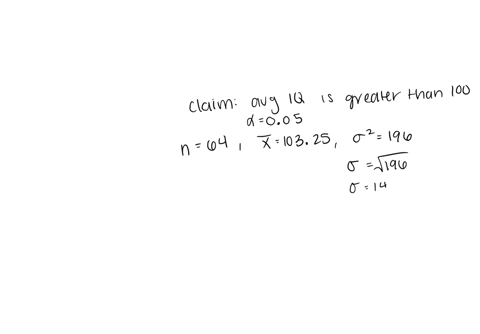 claim: avg IQ is greater than 100
α = 0.05
n = 64, x̄ = 103.25, σ² = 196
σ = √196
σ = 14